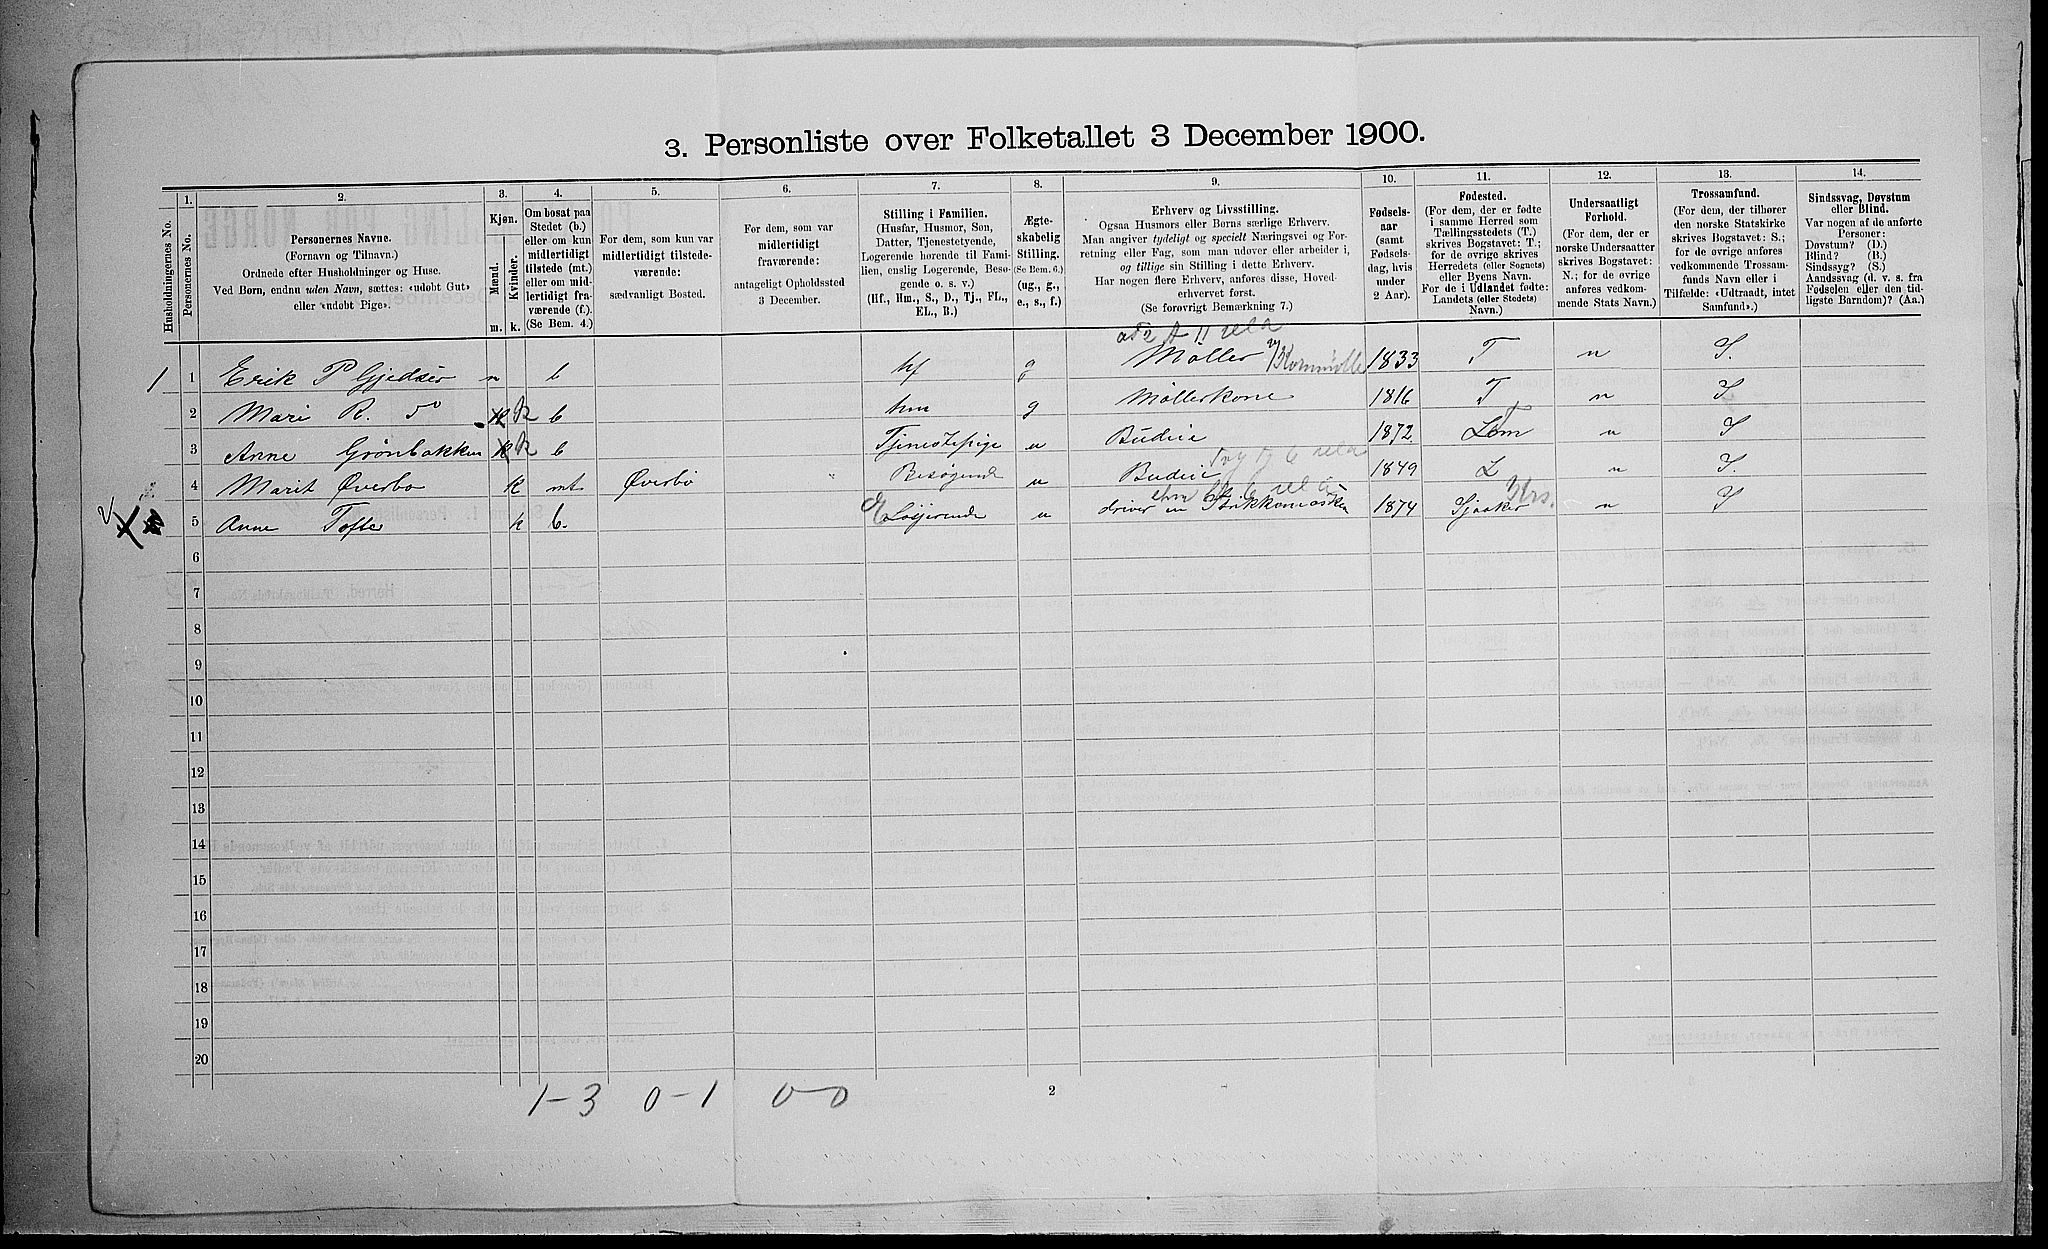 3. Personliste over Folketallet 3 December 1900.
Husholdningernes No.
1.
Personernes No.
2.
Personernes Navne.
(Fornavn og Tilnavn.)
Ordnede efter Husholdninger og Huse.
Ved Børn, endnu uden Navn, sættes: «udøbt Gut»
eller «udøbt Pige».
3.
Kjøn.
Mænd.
Kvinder.
m. k.
4.
Om bosat paa
Stedet (b.)
eller om kun
midlertidigt
tilstede (mt.)
eller om mid-
lertidigt fra-
værende (f.).
(Se Bem. 4.)
5.
For dem, som kun var
midlertidigt tilstede-
værende:
sædvanligt Bosted.
6.
For dem, som var
midlertidigt
fraværende:
antageligt Opholdssted
3 December.
7.
Stilling i Familien.
(Husfar, Husmor, Søn,
Datter, Tjenestetyende,
Logerende hørende til Fami-
lien, enslig Logerende, Besø-
gende o. s. v.)
(Hf., Hm., S., D., Tj., FL.,
EL., B.)
8.
Ægte-
skabelig
Stilling.
(Se Bem. 6.)
(ug., g.,
e., s., f.)
9.
Erhverv og Livsstilling.
Ogsaa Husmors eller Børns særlige Erhverv.
Man angiver tydeligt og specielt Næringsvei og For-
retning eller Fag, som man udøver eller arbeider i,
og tillige sin Stilling i dette Erhverv.
Har nogen flere Erhverv, anføres disse, Hoved-
erhvervet først.
(Se forøvrigt Bemærkning 7.)
10.
Fødsels-
aar
(samt
Fødsels-
dag, hvis
under
2 Aar).
11.
Fødested.
(For dem, der er fødte
i samme Herred som
Tællingsstedets (T.)
skrives Bogstavet: T.;
for de øvrige skrives
Herredets (eller Sognets)
eller Byens Navn.
For de i Udlandet fødte:
Landets (eller Stedets)
Navn.)
12.
Undersaatligt
Forhold.
(For dem, der er
norske Undersaatter
skrives Bogstavet:
N.; for de øvrige
anføres vedkom-
mende Stats Navn.)
13.
Trossamfund.
(For dem, der tilhører
den norske Statskirke
skrives Bogstavet: S.;
for de øvrige anføres
vedkommende Trossam-
funds Navn eller i
Tilfælde: «Udtraadt, intet
Samfund».)
14.
Sindssvag, Døvstum
eller Blind.
Var nogen af de anførte
Personer:
Døvstum? (D.)
Blind? (B.)
Sindssyg? (S.)
Aandssvag (d. v. s. fra
Fødselen eller den tid-
ligste Barndom)? (Aa.)
1 1 Erik P Gjedser m b hf g Møller v/Kornmølle 1833 T n S.
2 Mari R. do k b hm g Møllerkone 1816 T n S
3 Anne Grønbakken k b Tjenestepige u Budeie 1872 Lom T n S
4 Marit Øverbø k mt Øverbø Besøgende u Budeie 1849 L n S.
5 Anne Tofte k b. E Logerende u driver en Strikkemaskin 1874 Skjaaker n S
6
7
8
9
10
11
12
13
14
15
16
17
18
19
20
1-3 0-1 0-0
2